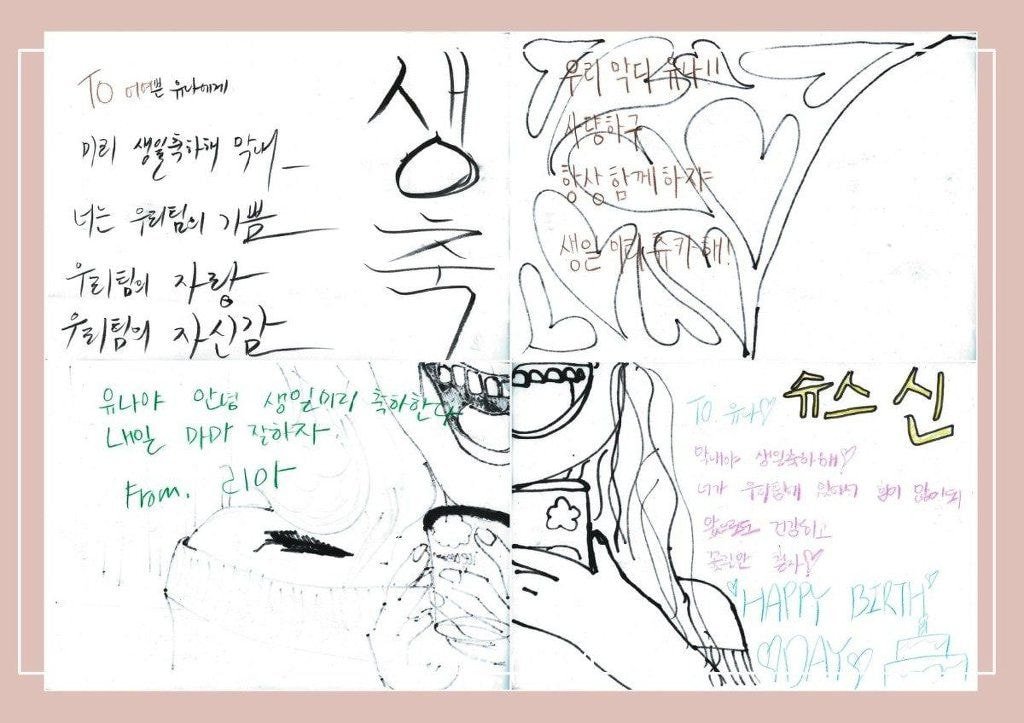 TO 어여쁜 유나에게
미리 생일축하해 막내
너는 우리팀의 기쁨
우리팀의 자랑
우리팀의 자신감
생
축
우리 막디 유나!!
사랑하구
항상 함께 하쟈
생일 미리 츄카해!
유나야 안녕 생일미리 축하한다
내일 마마 잘하자
From. 리아
TO 유나♡
슈스 신
막내야 생일축하해♡
너가 우리팀에 있어서 힘이 많이돼
건강하고
HAPPY BIRTH
DAY